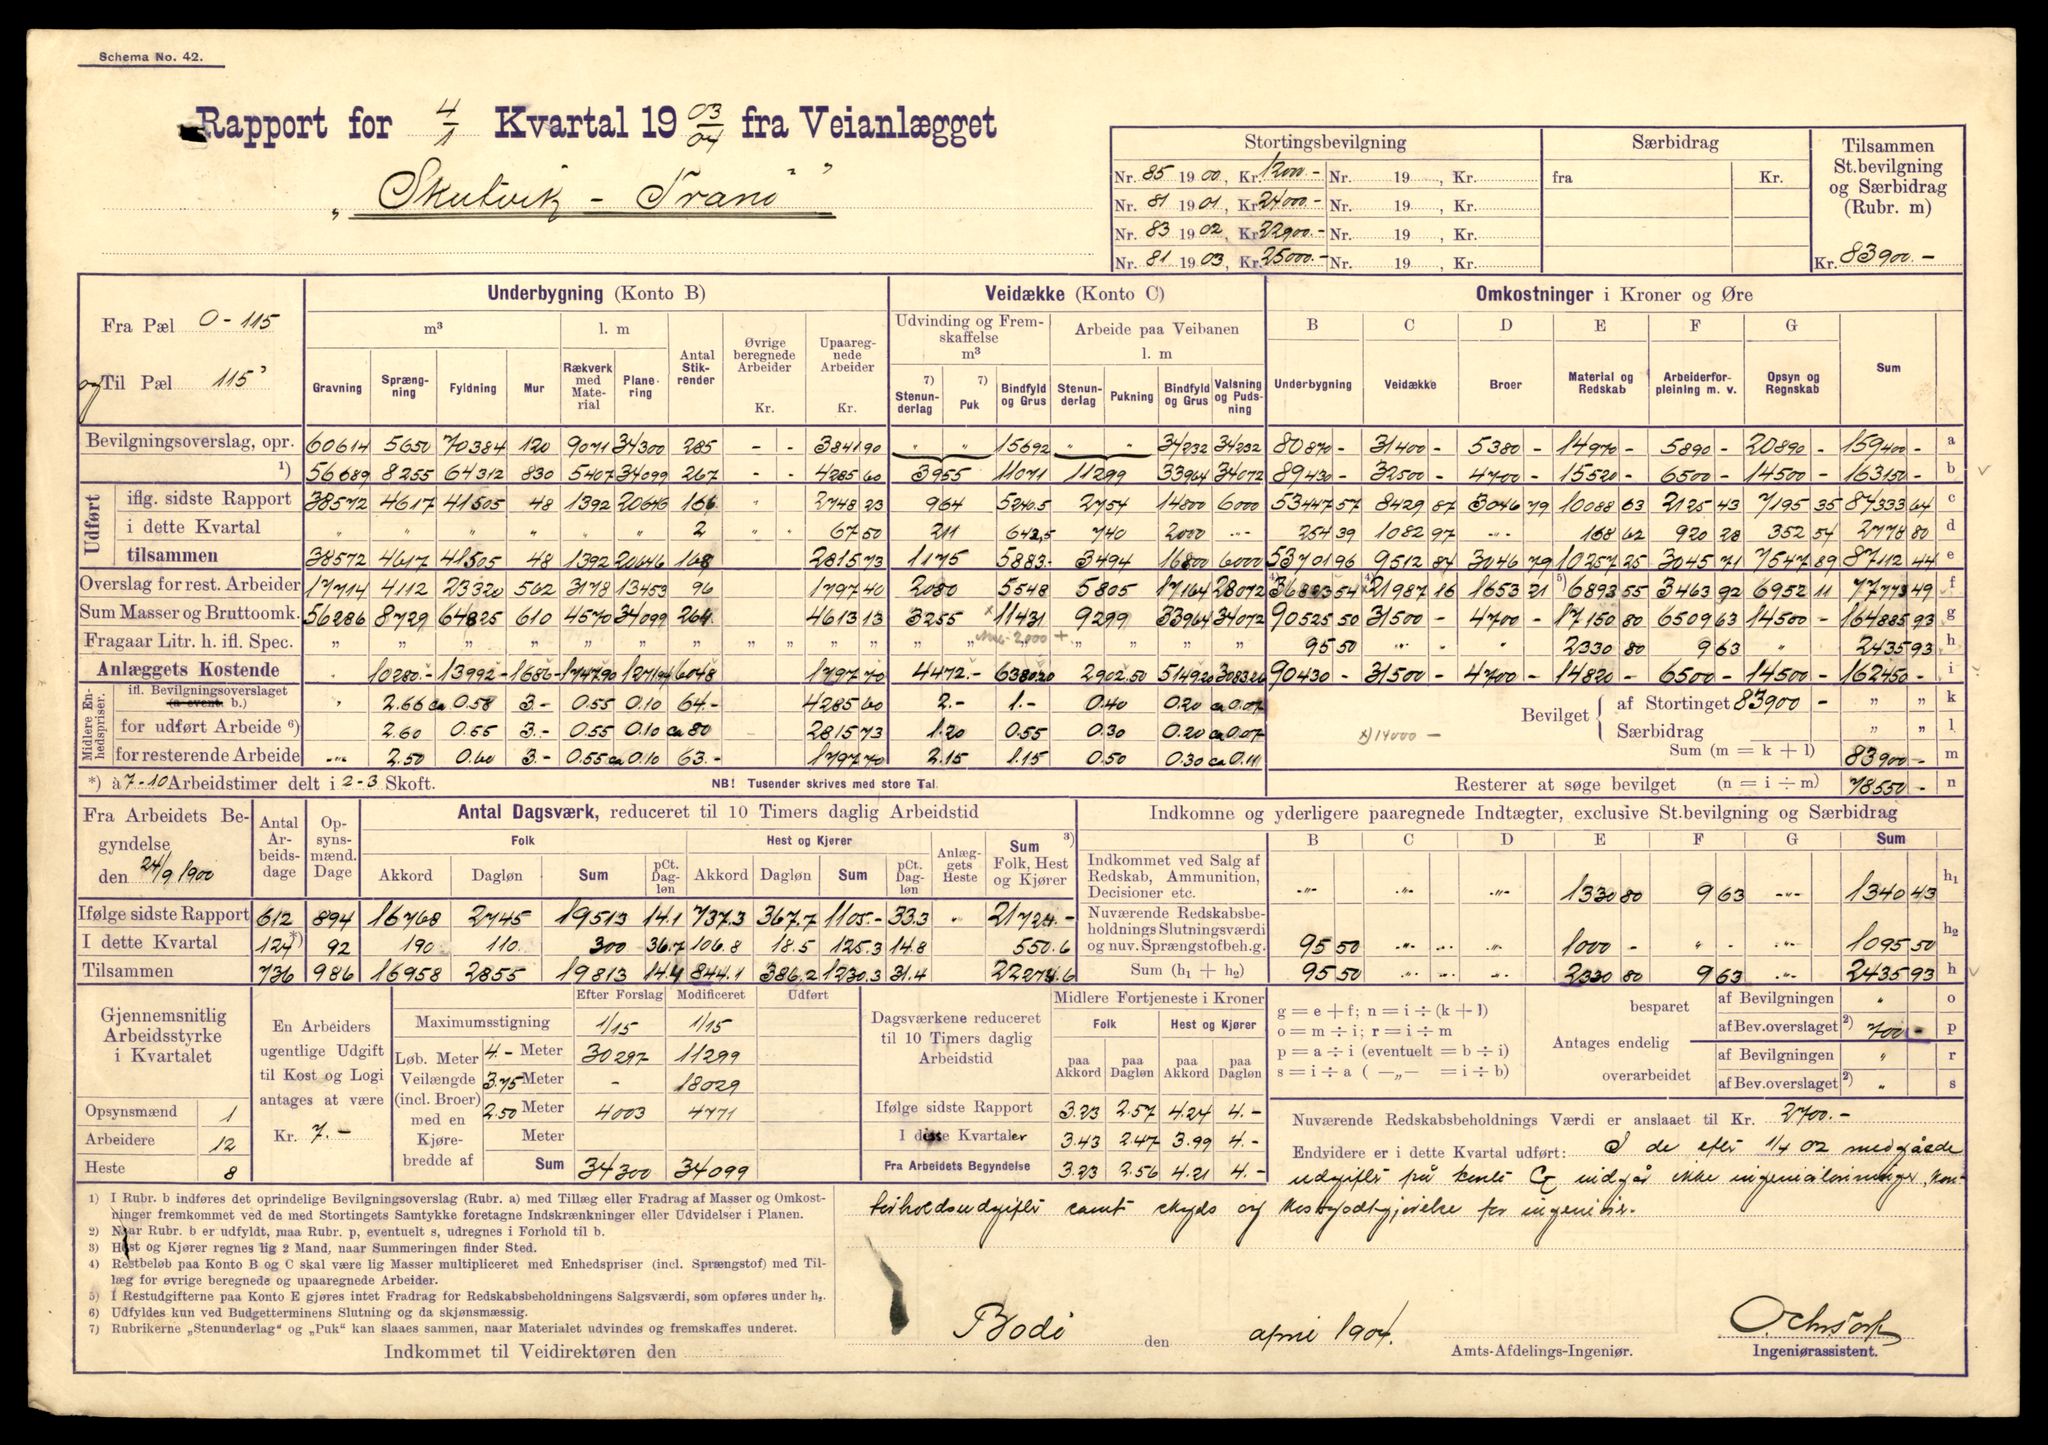 Schema No. 42.
Rapport for 4/1 Kvartal 19 03/04 fra Veianlægget
„Skutvik - Tranö”
Stortingsbevilgning Særbidrag Tilsammen St.bevilgning og Særbidrag (Rubr. m)
Nr. 85 1900, Kr. 12000.- Nr. 19 , Kr. fra Kr.
Nr. 81 1901, Kr. 24000.- Nr. 19 , Kr.
Nr. 83 1902, Kr. 22900.- Nr. 19 , Kr.
Nr. 81 1903, Kr. 25000.- Nr. 19 , Kr. Kr. 83900.-
Fra Pæl 0-115
og Til Pæl 115
Underbygning (Konto B) Veidække (Konto C) Omkostninger i Kroner og Øre
m³ l. m Antal Stikrender Øvrige beregnede Arbeider Kr. Upaaregnede Arbeider Kr. Udvinding og Fremskaffelse m³ Arbeide paa Veibanen l. m B C D E F G Sum
Gravning Sprængning Fyldning Mur Rækverk med Materiale Planering 7) Stenunderlag 7) Puk Bindfyld og Grus Stenunderlag Pukning Bindfyld og Grus Valsning og Pudsning Underbygning Veidække Broer Material og Redskab Arbeiderforpleining m. v. Opsyn og Regnskab
Bevilgningsoverslag, opr. 60614 5650 70384 120 9071 34300 285 - - 3841 90 „ „ 15692 „ „ 34232 34232 80870 - 31400 - 5380 - 14970 - 5890 - 20890 - 159400 - a
1) 56689 8255 64312 830 5407 34099 267 - - 4285 60 3955 11071 11299 33964 34072 89430 - 32500 - 4700 - 15520 - 6500 - 14500 - 163150 - b
Udført iflg. sidste Rapport 38572 4617 41505 48 1392 20646 166 „ 2748 23 964 5240.5 2754 14800 6000 53447 57 8429 87 3046 79 10088 63 2125 43 7195 35 87333 64 c
i dette Kvartal „ „ „ „ „ „ 2 „ „ 67 50 211 642,5 740 2000 -„- 254 39 1082 97 -„- 168 62 920 28 352 54 2778 80 d
tilsammen 38572 4617 41505 48 1392 20646 168 2815 73 1175 5883.- 3494 16800 6000 53701 96 9512 84 3046 79 10257 25 3045 71 7547 89 87112 44 e
Overslag for rest. Arbeider 17714 4112 23320 562 3178 13453 96 1797 40 2080 5548 5805 17164 28072 4) 36823 54 4) 21987 16 1653 21 5) 6893 55 3463 92 6952 11 77773 49 f
Sum Masser og Bruttoomk. 56286 8729 64825 610 4570 34099 264 4613 13 3255 x 11431 9299 33964 34072 90525 50 31500 - 4700 - 17150 80 6509 63 14500 - 164885 93 g
Fragaar Litr. h. ifl. Spec. „ „ „ „ „ „ „ „ „ „ „ 2000 + „ „ „ „ 95 50 -„- „ 2330 80 9 63 „ 2435 93 h
Anlæggets Kostende 10280.- 13992.- 1686.- 1747.90 1271.94 6048 1797 70 4472.- 6380.20 2902.50 5149.20 3083.26 90430 - 31500 - 4700 - 14820 - 6500 - 14500 - 162450 - i
Midlere Enhedspriser. ifl. Bevilgningsoverslaget (a event. b.) „ 2.66 ca 0.58 3.- 0.55 0.10 64.- 4285 60 2.- 1.- 0.40 0.20 ca 0.07 Bevilget af Stortinget 83900 - „ „ k
for udført Arbeide 6) 2.60 0.55 3.- 0.55 0.10 ca 80 2815 73 1.20 0.55 0.30 0.20 ca 0.07 x) 14000 - Særbidrag „ „ l
for resterende Arbeide -„- 2.50 0.60 3.- 0.55 ca 0.10 63.- 1797 70 2.15 1.15 0.50 0.30 ca 0.11 Sum (m = k + l) 83900 - m
*) à 7-10 Arbeidstimer delt i 2-3 Skoft. NB! Tusender skrives med store Tal. Resterer at søge bevilget (n = i ÷ m) 78550 - n
Fra Arbeidets Begyndelse den 24/9 1900 Antal Arbeidsdage Opsynsmænd. Dage Antal Dagsværk, reduceret til 10 Timers daglig Arbeidstid Indkomne og yderligere paaregnede Indtægter, exclusive St.bevilgning og Særbidrag
Folk Hest og Kjører Anlæggets Heste Sum 3) Folk, Hest og Kjører B C D E F G Sum
Akkord Dagløn Sum pCt. Dagløn Akkord Dagløn Sum pCt. Dagløn Indkommet ved Salg af Redskab, Ammunition, Decisioner etc. -„- -„- -„- 1330 80 9 63 -„- 1340 43 h₁
Ifølge sidste Rapport 612 894 16768 2745 19513 14.1 737.3 367.7 1105.- 33.3 „ 21724.- Nuværende Redskabsbeholdnings Slutningsværdi og nuv. Sprængstofbeh.g.
I dette Kvartal 124*) 92 190 110 300 36.7 106.8 18.5 125.3 14.8 550.6 95 50 -„- -„- 1000 - „ - -„- 1095 50 h₂
Tilsammen 736 986 16958 2855 19813 14.4 844.1 386.2 1230.3 31.4 22274.6 Sum (h₁ + h₂) 95 50 -„- -„- 2330 80 9 63 -„- 2435 93 h
Gjennemsnitlig Arbeidsstyrke i Kvartalet
Opsynsmænd 1
Arbeidere 12
Heste 8
En Arbeiders ugentlige Udgift til Kost og Logi antages at være
Kr. 7.-
Efter Forslag Modificeret Udført
Maximumsstigning 1/15 1/15
Løb. Meter Veilængde (incl. Broer) med en Kjørebredde af
4.- Meter 30297 11299
3.75 Meter - 18029
2.50 Meter 4003 4771
Meter
Sum 34300 34099
Dagsværkene reduceret til 10 Timers daglig Arbeidstid
Midlere Fortjeneste i Kroner
Folk Hest og Kjører
paa Akkord paa Dagløn paa Akkord paa Dagløn
Ifølge sidste Rapport 3.23 2.57 4.24 4.-
I disse Kvartaler 3.43 2.47 3.99 4.-
Fra Arbeidets Begyndelse 3.23 2.56 4.21 4.-
g = e + f; n = i ÷ (k + l)
o = m ÷ i; r = i ÷ m
p = a ÷ i (eventuelt = b ÷ i)
s = i ÷ a ( —„— = i ÷ b)
Antages endelig
besparet af Bevilgningen „ o
af Bev.overslaget 2) 700 - p
overarbeidet af Bevilgningen „ r
af Bev.overslaget 2) „ s
Nuværende Redskabsbeholdnings Værdi er anslaaet til Kr. 2700.-
Endvidere er i dette Kvartal udført: I de efter 1/4 02 medgåede
udgifter på konto G indgår ikke ingeniørlønninger, kon-
torholdsudgifter samt skyds og kostgodtgjørelse for ingeniør.
1) I Rubr. b indføres det oprindelige Bevilgningsoverslag (Rubr. a) med Tillæg eller Fradrag af Masser og Omkost-
ninger fremkommet ved de med Stortingets Samtykke foretagne Indskrænkninger eller Udvidelser i Planen.
2) Naar Rubr. b er udfyldt, maa Rubr. p, eventuelt s, udregnes i Forhold til b.
3) Hest og Kjører regnes lig 2 Mand, naar Summeringen finder Sted.
4) Restbeløb paa Konto B og C skal være lig Masser multipliceret med Enhedspriser (incl. Sprængstof) med Til-
læg for øvrige beregnede og upaaregnede Arbeider.
5) I Restudgifterne paa Konto E gjøres intet Fradrag for Redskabsbeholdningens Salgsværdi, som opføres under h₂.
6) Udfyldes kun ved Budgetterminens Slutning og da skjønsmæssig.
7) Rubrikerne „Stenunderlag“ og „Puk“ kan slaaes sammen, naar Materialet udvindes og fremskaffes underet.
Indkommet til Veidirektøren den
Bodö den april 1904.
Amts-Afdelings-Ingeniør.
Ingeniørassistent.